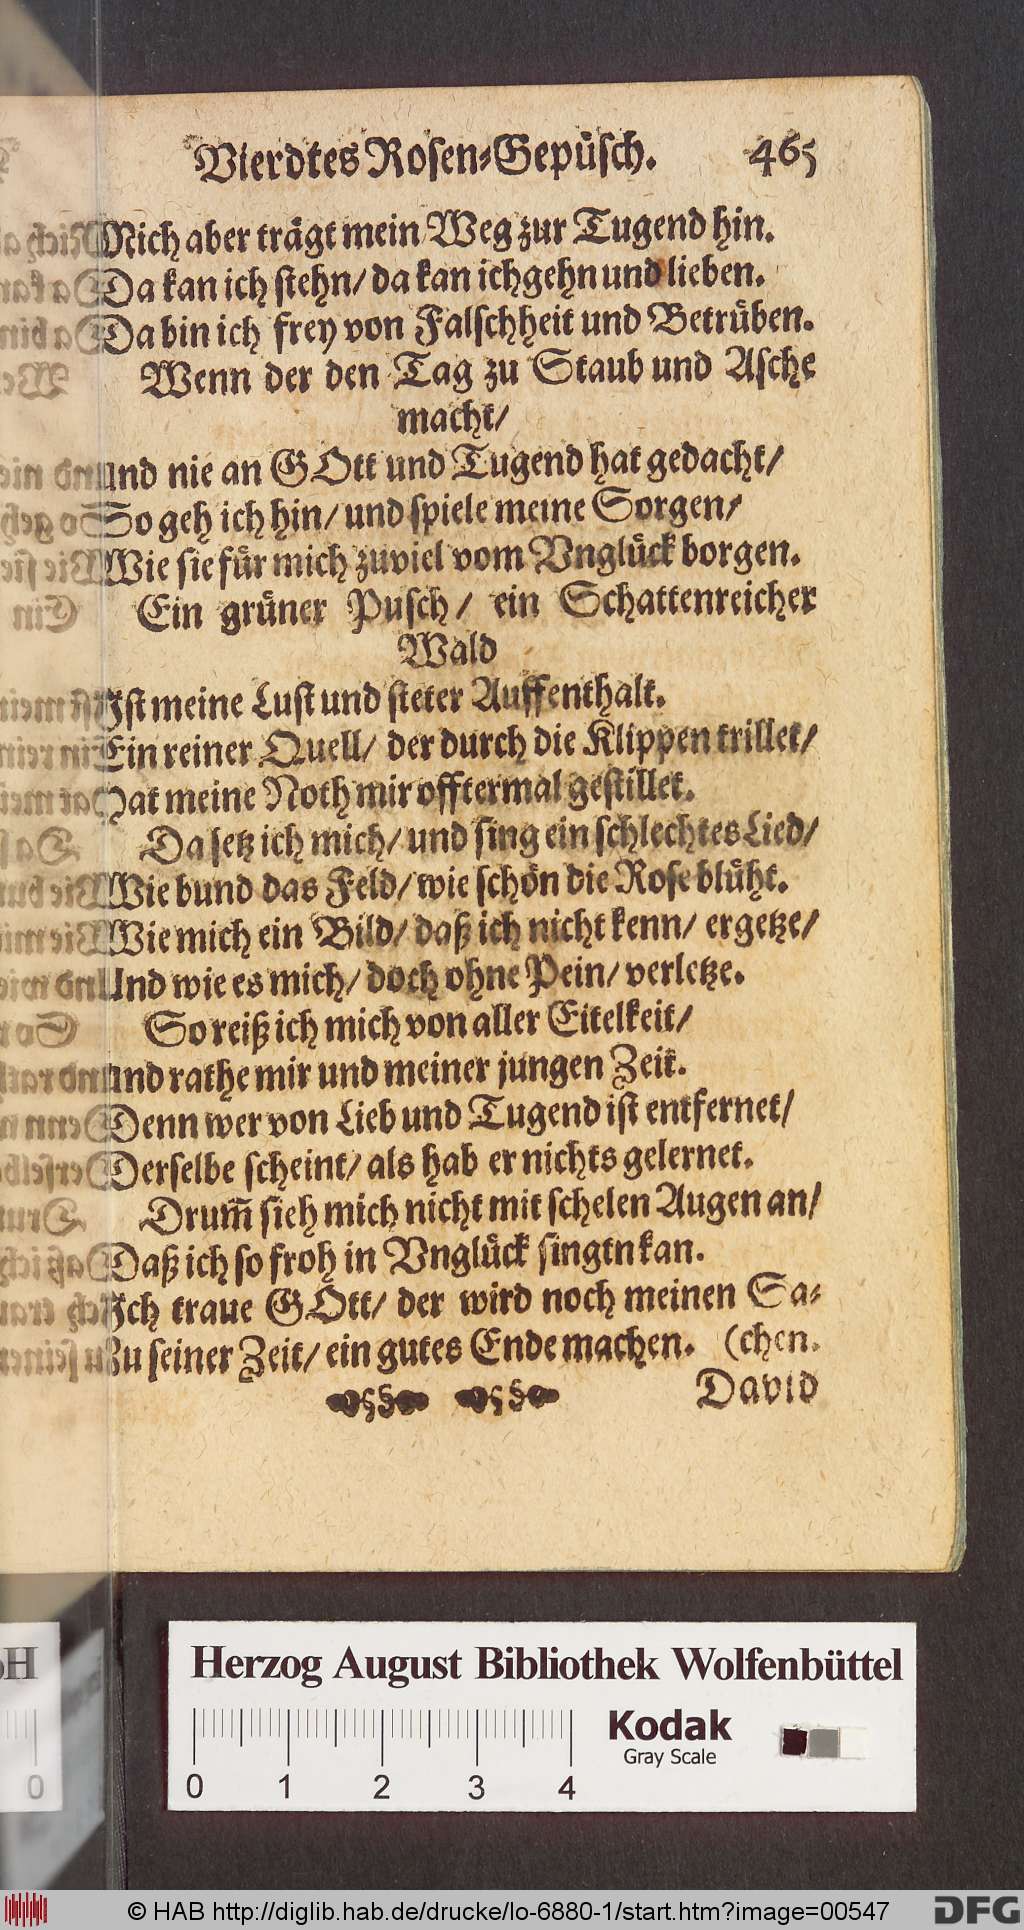 Vierdtes Rosen-Gepüsch. 465
Mich aber trägt mein Weg zur Tugend hin.
Da kan ich stehn/ da kan ichgehn und lieben.
Da bin ich frey von Falschheit und Betrüben.
Wenn der den Tag zu Staub und Asche
macht/
Und nie an GOtt und Tugend hat gedacht/
So geh ich hin/ und spiele meine Sorgen/
Wie sie für mich zuviel vom Vnglück borgen.
Ein grüner Pusch/ ein Schattenreicher
Wald
Ist meine Lust und steter Auffenthalt.
Ein reiner Quell/ der durch die Klippen trillet/
Hat meine Noth mir offtermal gestillet.
Da setz ich mich/ und sing ein schlechtes Lied/
Wie bund das Feld/ wie schön die Rose blüht.
Wie mich ein Bild/ daß ich nicht kenn/ ergetze/
Und wie es mich/ doch ohne Pein/ verletze.
So reiß ich mich von aller Eitelkeit/
Und rathe mir und meiner jungen Zeit.
Denn wer von Lieb und Tugend ist entfernet/
Derselbe scheint/ als hab er nichts gelernet.
Drum̃ sieh mich nicht mit schelen Augen an/
Daß ich so froh in Vnglück singen kan.
Ich traue GOtt/ der wird noch meinen Sa-
Zu seiner Zeit/ ein gutes Ende machen. (chen.
David
Herzog August Bibliothek Wolfenbüttel
Kodak
Gray Scale
0 1 2 3 4
0
© HAB http://diglib.hab.de/drucke/lo-6880-1/start.htm?image=00547
DFG